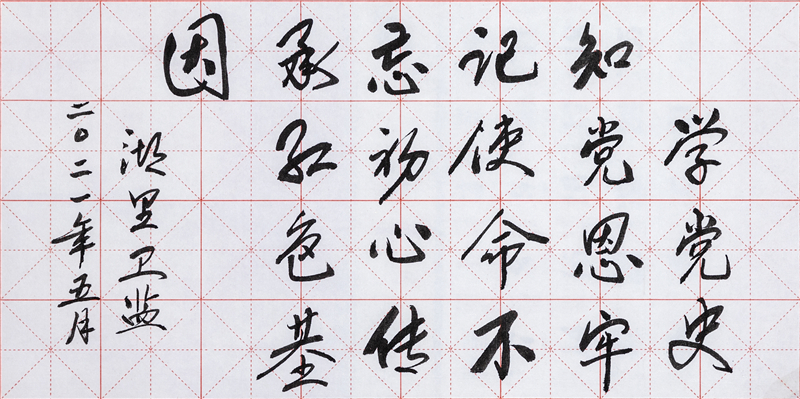 学党史
知党恩牢
记使命不
忘初心传
承红色基
因
湖里卫监
二〇二一年五月